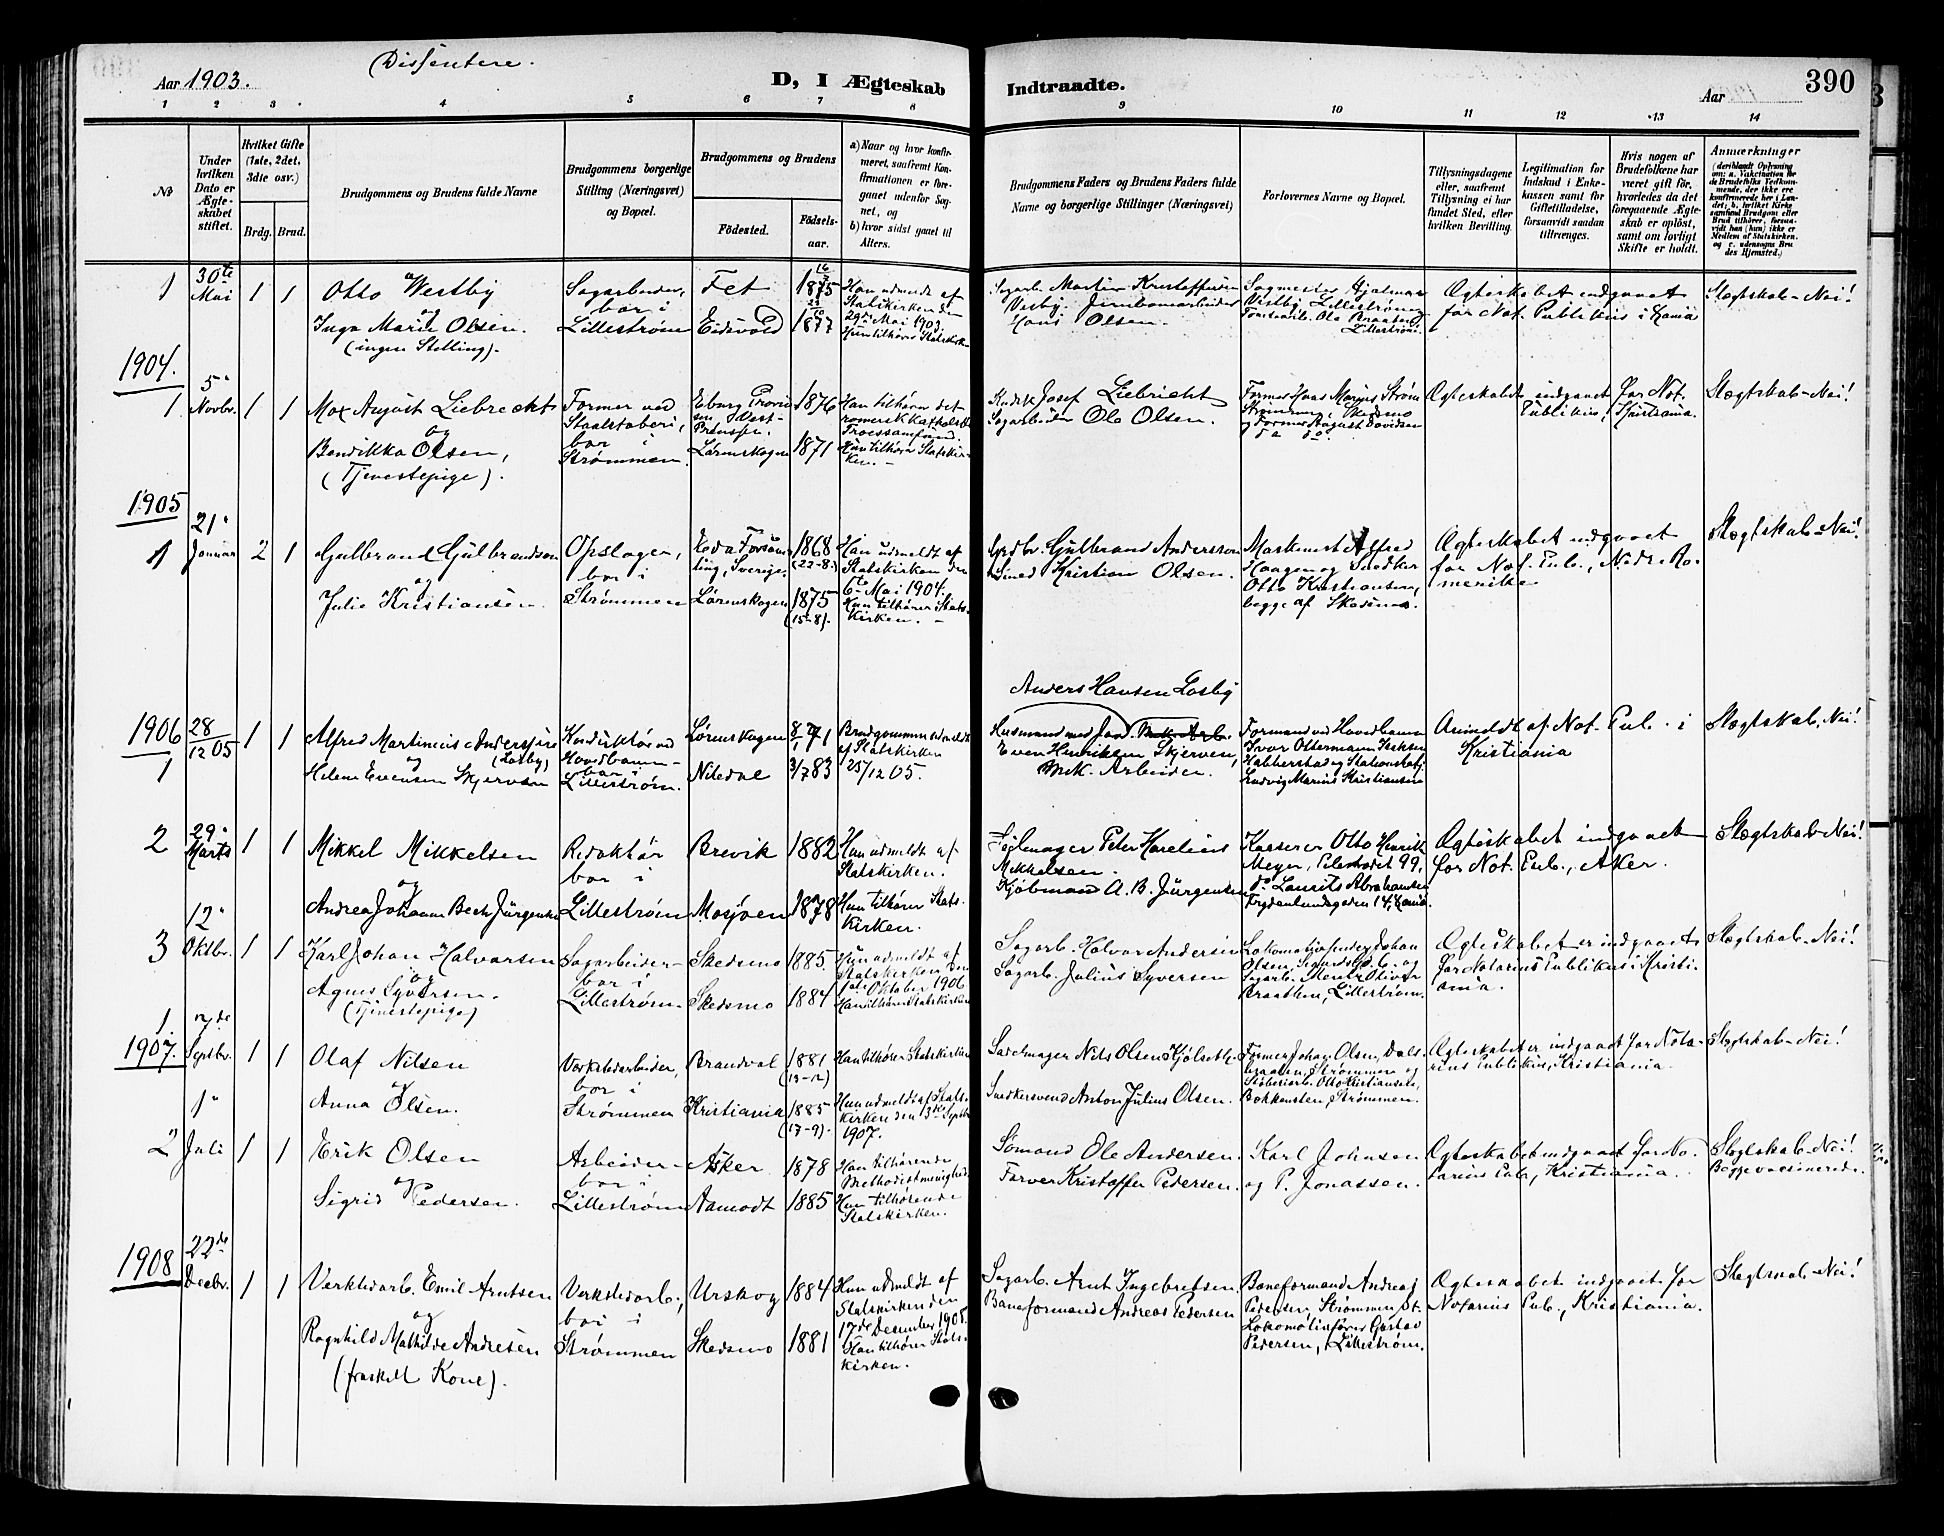 Dissentere.
Aar 1903.
D, I Ægteskab Indtraadte.
Aar
390
1 2 3 4 5 6 7 8 9 10 11 12 13 14
No
Under hvilken Dato er Ægteskabet stiftet.
Hvilket Gifte (1ste, 2det, 3die osv.)
Brdg. Brud.
Brudgommens og Brudens fulde Navne
Brudgommens borgerlige Stilling (Næringsvei) og Bopæl.
Brudgommens og Brudens
Fødested.
Fødselsaar.
a) Naar og hvor konfirmeret, saafremt Konfirmationen er foregaaet udenfor Sognet, og
b) hvor sidst gaaet til Alters.
Brudgommens Faders og Brudens Faders fulde Navne og borgerlige Stillinger (Næringsvei)
Forlovernes Navne og Bopæl.
Tillysningsdagene eller, saafremt Tillysning ei har fundet Sted, efter hvilken Bevilling.
Legitimation for Indskud i Enkekassen samt for Giftetilladelse, forsaavidt saadan tiltrænges.
Hvis nogen af Brudefolkene har været gift før, hvorledes da det foregaaende Ægteskab er opløst, samt om lovligt Skifte er holdt.
Anmærkninger
(deriblandt Oplysning om: a. Vakcination for de Brudefolks Vedkommende, der ikke ere konfirmerede her i Landet; b. hvilket Kirkesamfund Brudgom eller Brud tilhører, forsaavidt han (hun) ikke er Medlem af Statskirken, og c. udensogns Brudes Hjemsted.)
1 30te Mai 1 1
Otto Westby
og
Inga Marie Olsen.
(ingen Stilling).
Sagarbeider,
bor i
Lillestrøm
Fet
Eidsvold
1875
1877
Han udmeldt af
Statskirken den
29de Mai 1903.
Hun tilhører Statskirk-
Sagarb. Martin Kristoffersen
Visby. Jernbanearbeider
Hans Olsen.
Sagmester Hjalmar
Vistby Lillestrøm
Lillestrøm.
Ægteskabet indgaaet
for Not. Publikus i Kania
Slægtskab - Nei!
1904.
1 5' Novbr. 1 1
Max August Liebrecht
og
Bendikka Olsen,
(Tjenestepige).
Former ved
Staalstøberi,
bor i
Strømmen.
Lørenskogen
1876
1871
Han tilhører det
romersk katholske
Troessamfund.
Hun tilhører Statskir-
ken. -
Josef Liebricht
Sagarbeider Ole Olsen.
Ægteskabet indgaaet for Not.
Publikus, Kristiania.
Slægtskab - Nei!
1905
1 21' Januar 2 1
Gulbrand Gulbrandsen
og
Julie Kristiansen.
Opslager,
bor i
Strømmen
Eda Forsam-
ling, Sverige.
Lørenskogen
1868
(22-8.)
1875
(15-8).
Han udmeldt af
Statskirken den
6te Mai 1904.
Hun tilhører Stats-
kirken. -
Gdbr. Gulbrand Andersson
Smed Kristian Olsen.
Maskinist Alfred
Haagen og Snedker
Otto Kristiansen,
begge af Skedsmo.
Ægteskabet indgaaet
for Not. Pub., Nedre Ro-
merike
Slægtskab - Nei!
1906
1 28/12 05 1 1
Alfred Martinius Anderssen
og (Losby)
Helene Evensen Skjerven
Konduktør ved
Hovedbanen
bor i
Lillestrøm.
Lørenskogen
Nitedal
8/1 71
3/7 83
Brudgommen udmeldt
af Statskirken
23/12 05.
Anders Hansen Losby
Husmand med Jord
Even Henriksen Skjerven,
Mek. Arbeider.
Formand ved Hovedbanen
Ludvig Marius Kristiansen
Anmeldt af Not. Pub. i
Kristiania
Slægtskab. Nei!
2 29' Marts 1 1
Mikkel Mikkelsen
og
Andrea Johanne Bech Jürgensen
Redaktør
bor i
Lillestrøm
Brevik
Mosjøen
1882
1878
Han udmeldt af
Statskirken.
Hun tilhører Stats-
kirken.
Sejlmager Peter Karelius
Mikkelsen.
Kjøbmand A. B. Jürgensen
Kasserer Otto Henrik
Meyer, Pilestrædet 99,
do Laurits Abrahamsen
Frydenlundsgaden 14, Kania.
Ægteskabet indgaaet
for Not. Pub., Aker.
Slægtskab - Nei!
3 12' Oktbr. 1 1
Karl Johan Halvorsen
og
Agnes Syversen.
(Tjenestepige)
Sagarbeider -
bor i
Lillestrøm
Skedsmo
Skedsmo
1885.
1884
Hun udmeldt af
Statskirken den
Oktober 1906
Han tilhører Statskirken
Sagarb. Halvor Andersen
Sagarb. Julius Syversen
Lokomotivfyrbøder Johan
Olsen,
Braathen, Lillestrøm.
Ægteskabet er indgaaet
for Notarius Publikus i Kristi-
ania.
Slægtskab - Nei!
1.
1907. 7de Septbr. 1 1
Olaf Nilsen
og
Anna Olsen.
Værkstedarbeider,
bor i
Strømmen
Brandval
Kristiania
1881
(13-12)
1885
(17-9).
Han tilhører Statskirken
Hun udmeldt af Stats-
kirken den 3die Septbr
1907.
Sadelmager Nils Olsen
Snedkersvend Anton Julius Olsen.
Former Johan Olsen, Dals-
Strømmen og
Støberiarb. Otto Kristiansen,
Bakkensten, Strømmen.
Ægteskabet er indgaaet for Nota-
rius Publikus, Kristiania.
Slægtskab - Nei!
2 1' Juli 1 1
Erik Olsen
og
Sigrid Pedersen.
Arbeider -
bor i
Lillestrøm
Asker
Aamodt
1878
1885
Han tilhørende
Methodistmenighed.
Hun tilhørende
Statskirken.
Sømand Ole Andersen.
Farver Kristoffer Pedersen.
Karl Johnsen
og P. Jonassen.
Ægteskabet indgaaet for No-
tarius Pub., Kristiania.
Slægtskab - Nei!
Begge vaccinerede.
1908
22de Decbr. 1 1
Verkstedarb. Emil Arntsen
og
Ragnhild Mathilde Andresen
(fraskilt Kone).
Verkstedarb.,
bor i
Strømmen
Urskog
Skedsmo
1884
1881
Hun udmeldt af
Statskirken den
17de December 1908.
Han tilhører Stats-
kirken.
Sagarb. Arnt Ingebretsen.
Baneformand Andreas Pedersen
Baneformand Andreas
Pedersen, Strømmen St.
Lokomotivfører Gustav
Pedersen, Lillestrøm.
Ægteskabet indgaaet for
Notarius Pub., Kristiania.
Slægtskab - Nei!